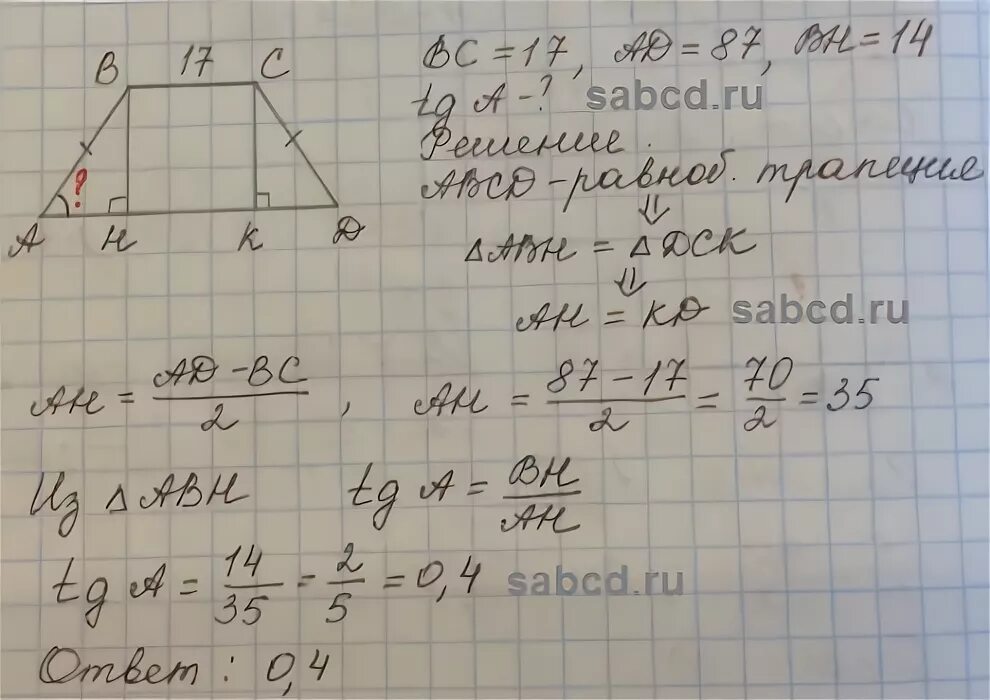 B 17 C
BC = 17, AD = 87, BH = 14
tg A - ? sabcd.ru
Решение.
ABCD - равноб. трапеция
⇓
△ABH = △DCK
⇓
AH = KD sabcd.ru
?
A H K D
AH = (AD - BC)/2, AH = (87 - 17)/2 = 70/2 = 35
Из △ABH tg A = BH/AH
tg A = 14/35 = 2/5 = 0,4 sabcd.ru
Ответ: 0,4